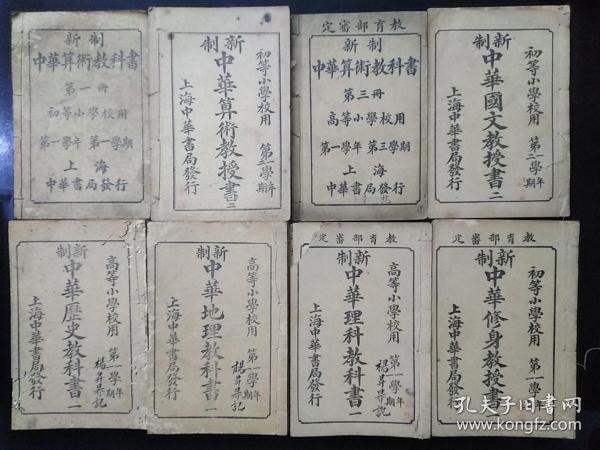 新制
中華算術教科書
第一冊
初等小學校用
第一學年 第一學期
上海
中華書局發行
初等小學校用 第一學年
新制
中華算術教授書二
上海中華書局發行
教育部審定
新制
中華算術教科書
第三冊
高等小學校用
第一學年 第三學期
上海
中華書局發行
初等小學校用
新制
中華國文教授書二
上海中華書局發行
高等小學校用 第一學年
新制
中華歷史教科書一
上海中華書局發行
高等小學校用 第一學年
新制
中華地理教科書一
上海中華書局發行
教育部審定
高等小學校用 第一學年
新制
中華理科教科書一
上海中華書局發行
教育部審定
初等小學校用 第一學年
新制
中華修身教授書一
上海中華書局發行
孔夫子旧书网
kongfz.com